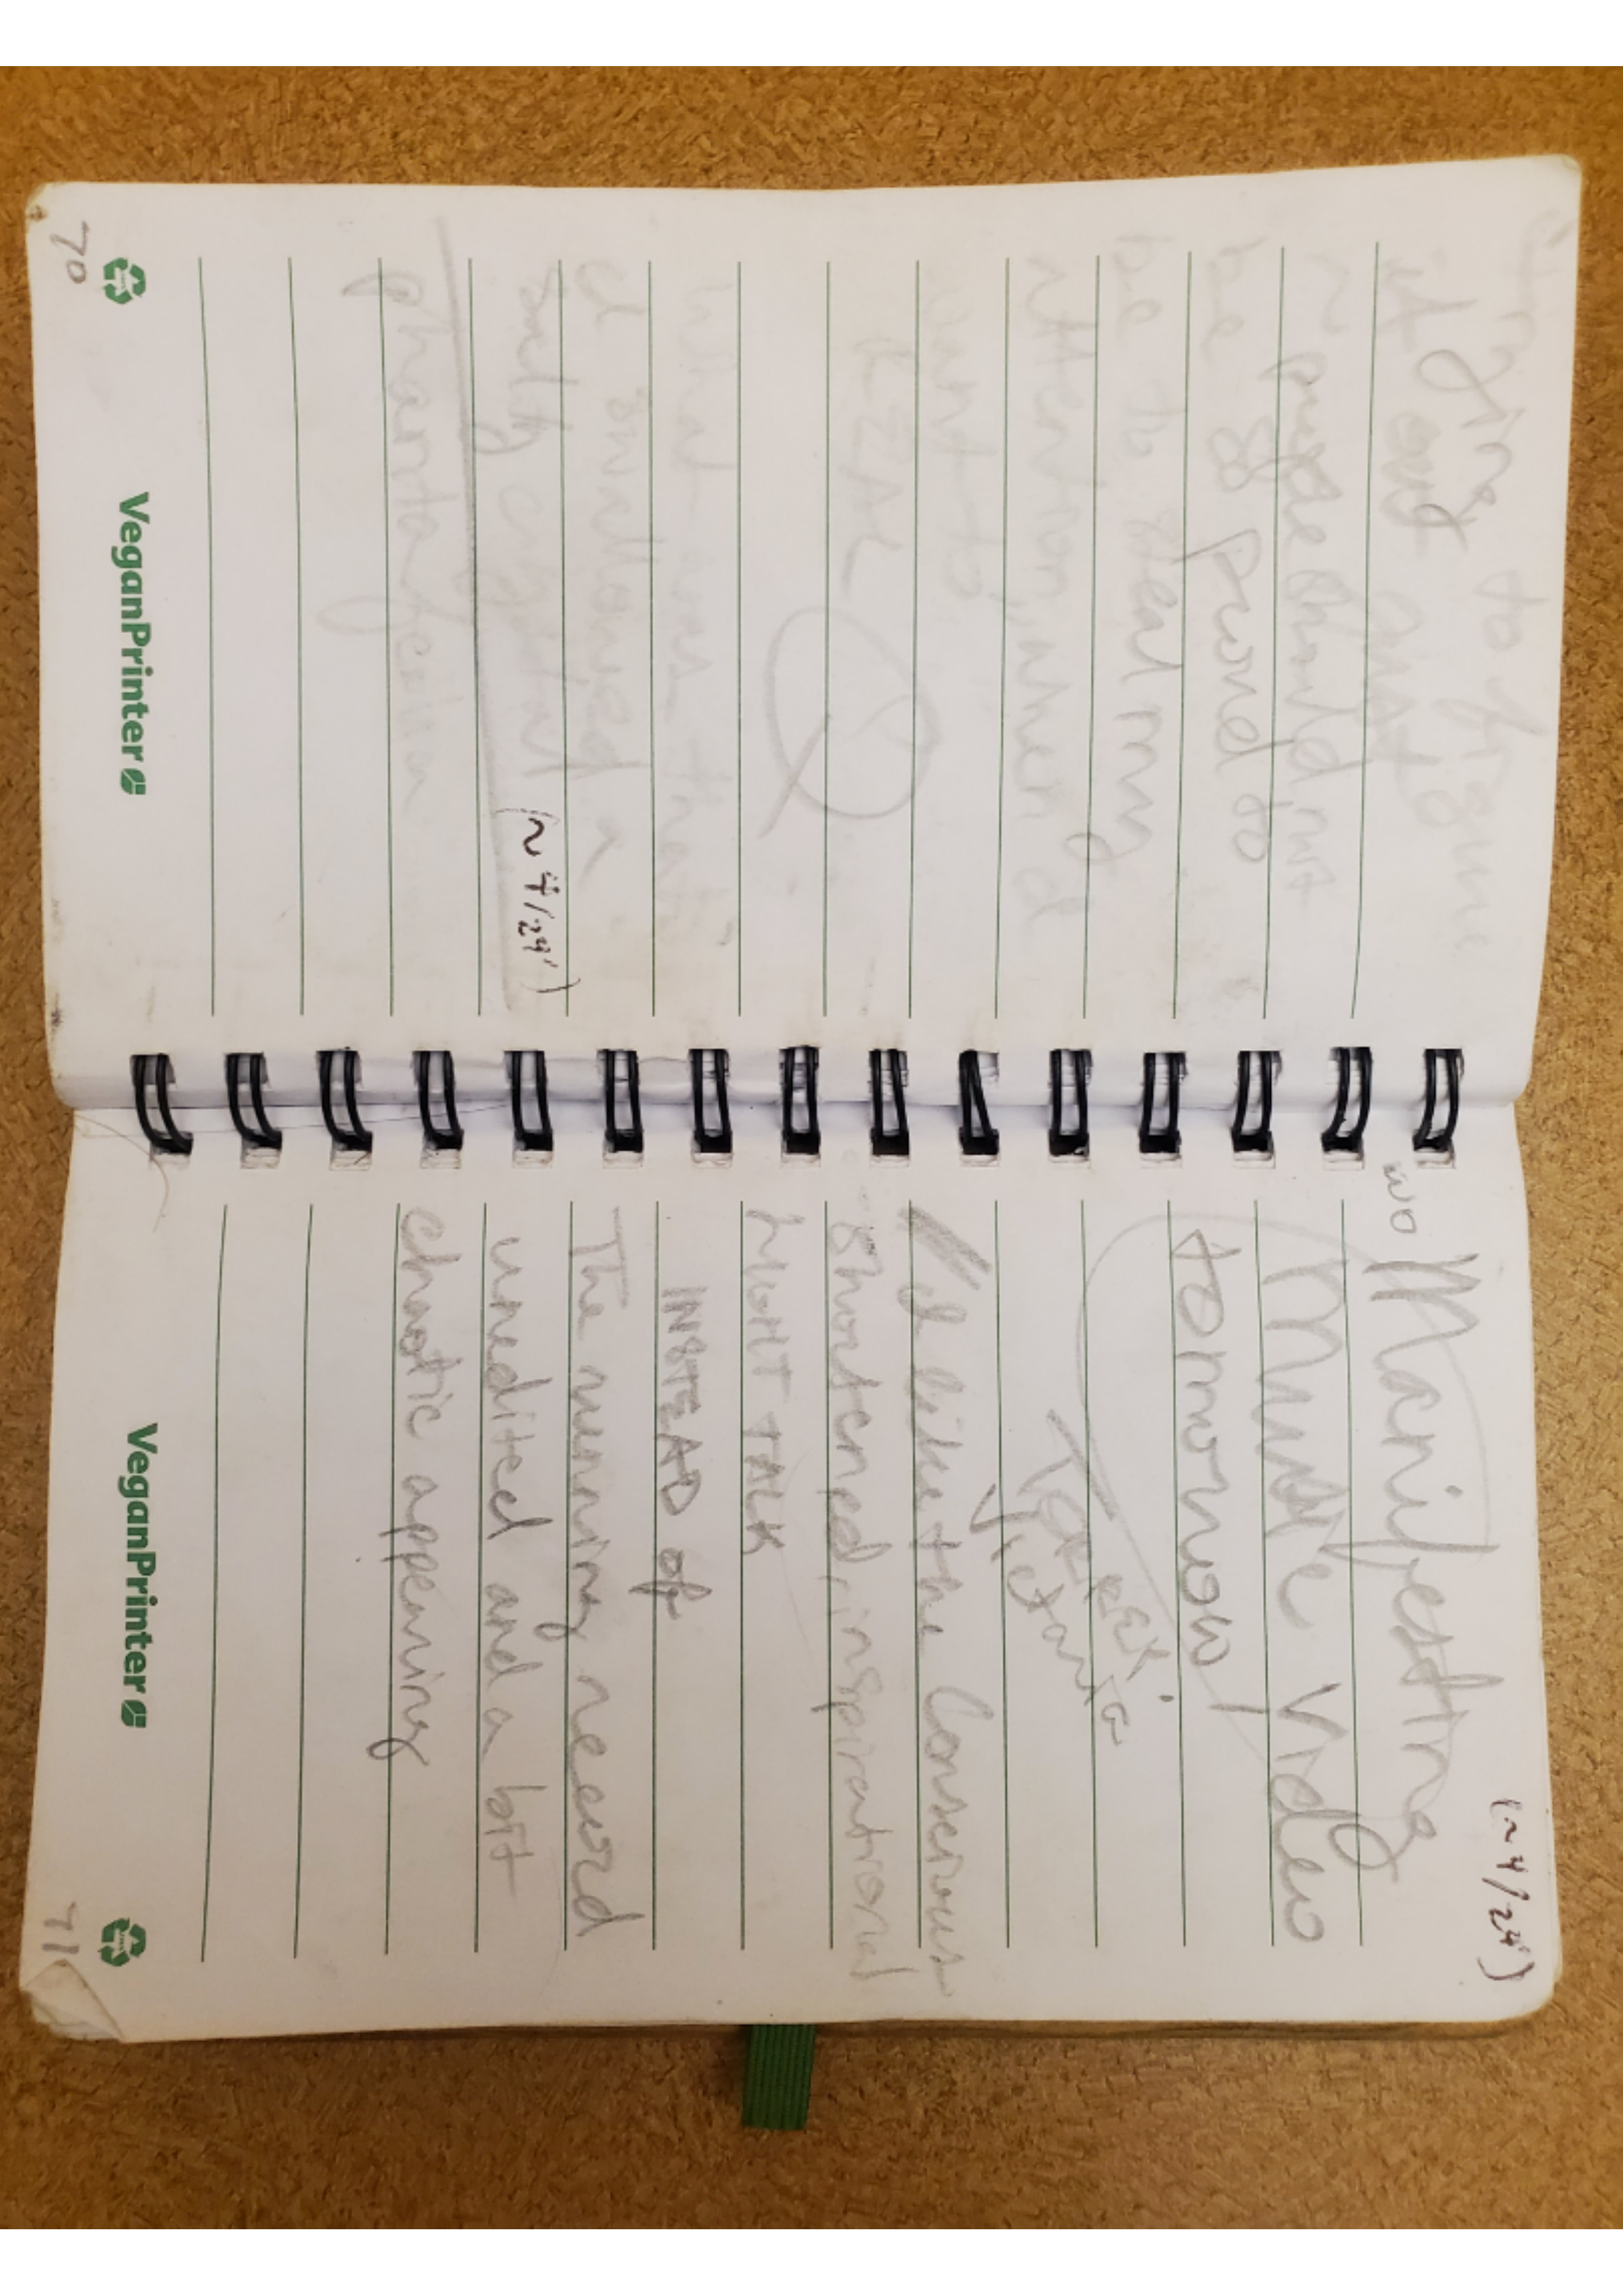 trying to figure
it out and to
be so proud so
be to steal my
attention, when I
want to
REAL
what was that
I swallowed a
salty crystal
(~4/24')
phantasia
VeganPrinter
70
(~4/24')
wo
Manifesting
Music Video
tomorrow
TARGET
Victoria
I like the conscious
shortened, inspirational
NIGHT TALK
INSTEAD of
The running record
unedited and a bit
chaotic appearing
VeganPrinter
71